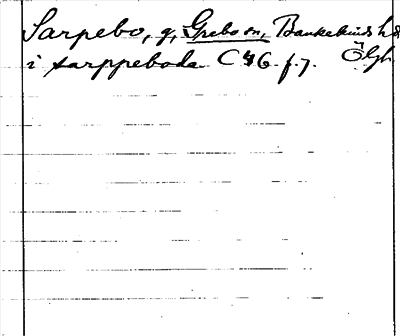 Sarpebo, g, Grebo sn, Bankekinds hd
i sarppeboda C 46 f. 7. Ölgh